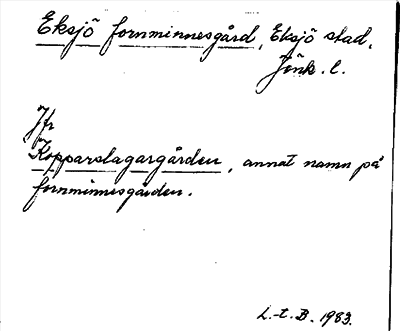 Eksjö fornminnesgård, Eksjö stad,
Jönk. l.
Jfr
Kopparslagargården, annat namn på
fornminnesgården.
L.-t. B. 1983.